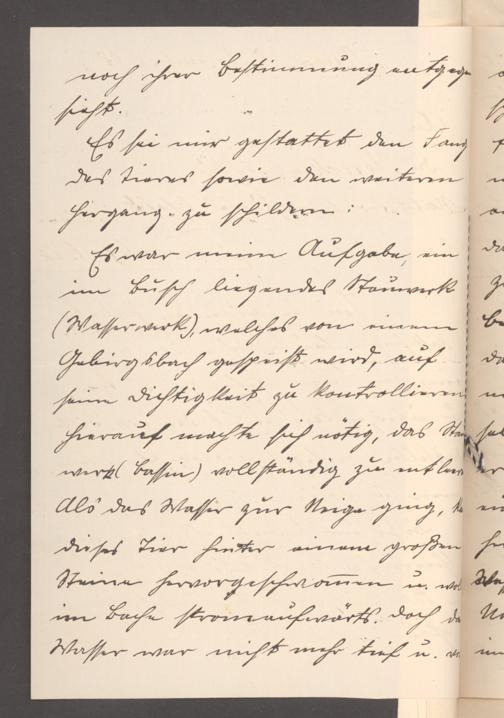 noch ihrer Bestimmung entgegen
sieht.
Es sei mir gestattet den Fang
des Tieres sowie den weiteren
Hergang zu schildern:
Es war meine Aufgabe, ein
im Busch liegendes Stauwerk
(Wasserwerk), welches von einem
Gebirgsbach gespeist wird, auf
seine Dichtigkeit zu kontrollieren
hierauf machte sich nötig, das Stau
werk (Bassin) vollständig zu entleer
Als das Wasser zur Neige ging, k
dieses Tier hinter einem großen
Steine hervorgeschwommen u. wol
im Bache stromaufwärts. Doch da
Wasser war nicht mehr tief u.